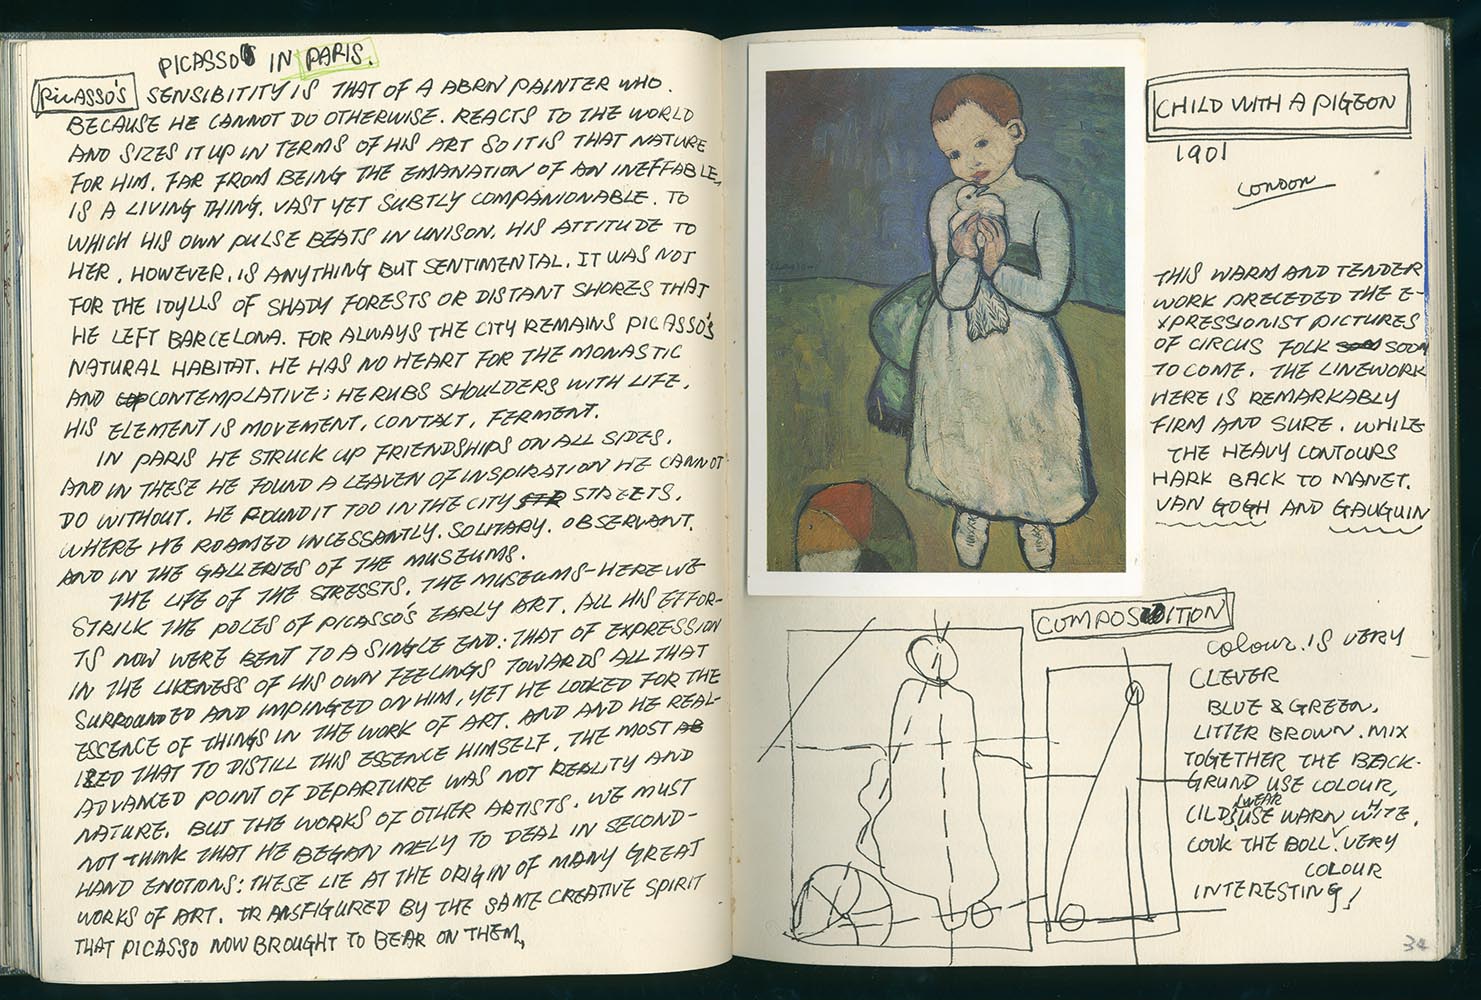 PICASSO'S IN PARIS.
PICASSO'S SENSIBITITY IS THAT OF A ABRN PAINTER WHO.
BECAUSE HE CANNOT DO OTHERWISE. REACTS TO THE WORLD
AND SIZES IT UP IN TERMS OF HIS ART SO IT IS THAT NATURE
FOR HIM. FAR FROM BEING THE EMANATION OF AN INEFFABLE,
IS A LIVING THING. VAST YET SUBTLY COMPANIONABLE. TO
WHICH HIS OWN PULSE BEATS IN UNISON. HIS ATTITUDE TO
HER. HOWEVER. IS ANYTHING BUT SENTIMENTAL. IT WAS NOT
FOR THE IDYLLS OF SHADY FORESTS OR DISTANT SHORES THAT
HE LEFT BARCELONA. FOR ALWAYS THE CITY REMAINS PICASSO'S
NATURAL HABITAT. HE HAS NO HEART FOR THE MONASTIC
AND CONTEMPLATIVE; HE RUBS SHOULDERS WITH LIFE.
HIS ELEMENT IS MOVEMENT, CONTALT, FERMENT.
IN PARIS HE STRUCK UP FRIENDSHIPS ON ALL SIDES.
AND IN THESE HE FOUND A LEAVEN OF INSPIRATION HE CANNOT
DO WITHOUT. HE ROUND IT TOO IN THE CITY STREETS.
WHERE HE ROAMED INCESSANTLY. SOLITARY. OBSERVANT.
AND IN THE GALLERIES OF THE MUSEUMS.
THE LIFE OF THE STRESSTS. THE MUSEUMS-HERE WE
STRILK THE POLES OF PICASSO'S EARLY ART. ALL HIS EFFOR-
TS NOW WERE BENT TO A SINGLE END: THAT OF EXPRESSION
IN THE LIKENESS OF HIS OWN FEELINGS TOWARDS ALL THAT
SURROUNDED AND IMPINGED ON HIM, YET HE LOOKED FOR THE
ESSENCE OF THINGS IN THE WORK OF ART. AND AND HE REAL-
IZED THAT TO DISTILL THIS ESSENCE HIMSELF. THE MOST
ADVANCED POINT OF DEPARTURE WAS NOT REALITY AND
NATURE. BUT THE WORKS OF OTHER ARTISTS. WE MUST
NOT THINK THAT HE BEGAN MELY TO DEAL IN SECOND-
HAND ENOTIONS: THESE LIE AT THE ORIGIN OF MANY GREAT
WORKS OF ART. TRANSFIGURED BY THE SAME CREATIVE SPIRIT
THAT PICASSO NOW BROUGHT TO BEAR ON THEM,
CHILD WITH A PIGEON
1901
LONDON
THIS WARM AND TENDER
WORK PRECEDED THE E-
XPRESSIONIST PICTURES
OF CIRCUS FOLK SOON
TO COME. THE LINEWORK
HERE IS REMARKABLY
FIRM AND SURE. WHILE
THE HEAVY CONTOURS
HARK BACK TO MANET.
VAN GOGH AND GAUGUIN
COMPOSITION
COLOUR. IS VERY
CLEVER
BLUE & GREEN,
LITTER BROWN. MIX
TOGETHER THE BACK-
GRUND USE COLOUR,
CILDS WEAR USE WARN WHITE.
LOOK THE BOLL. VERY
COLOUR
INTERESTING!
34